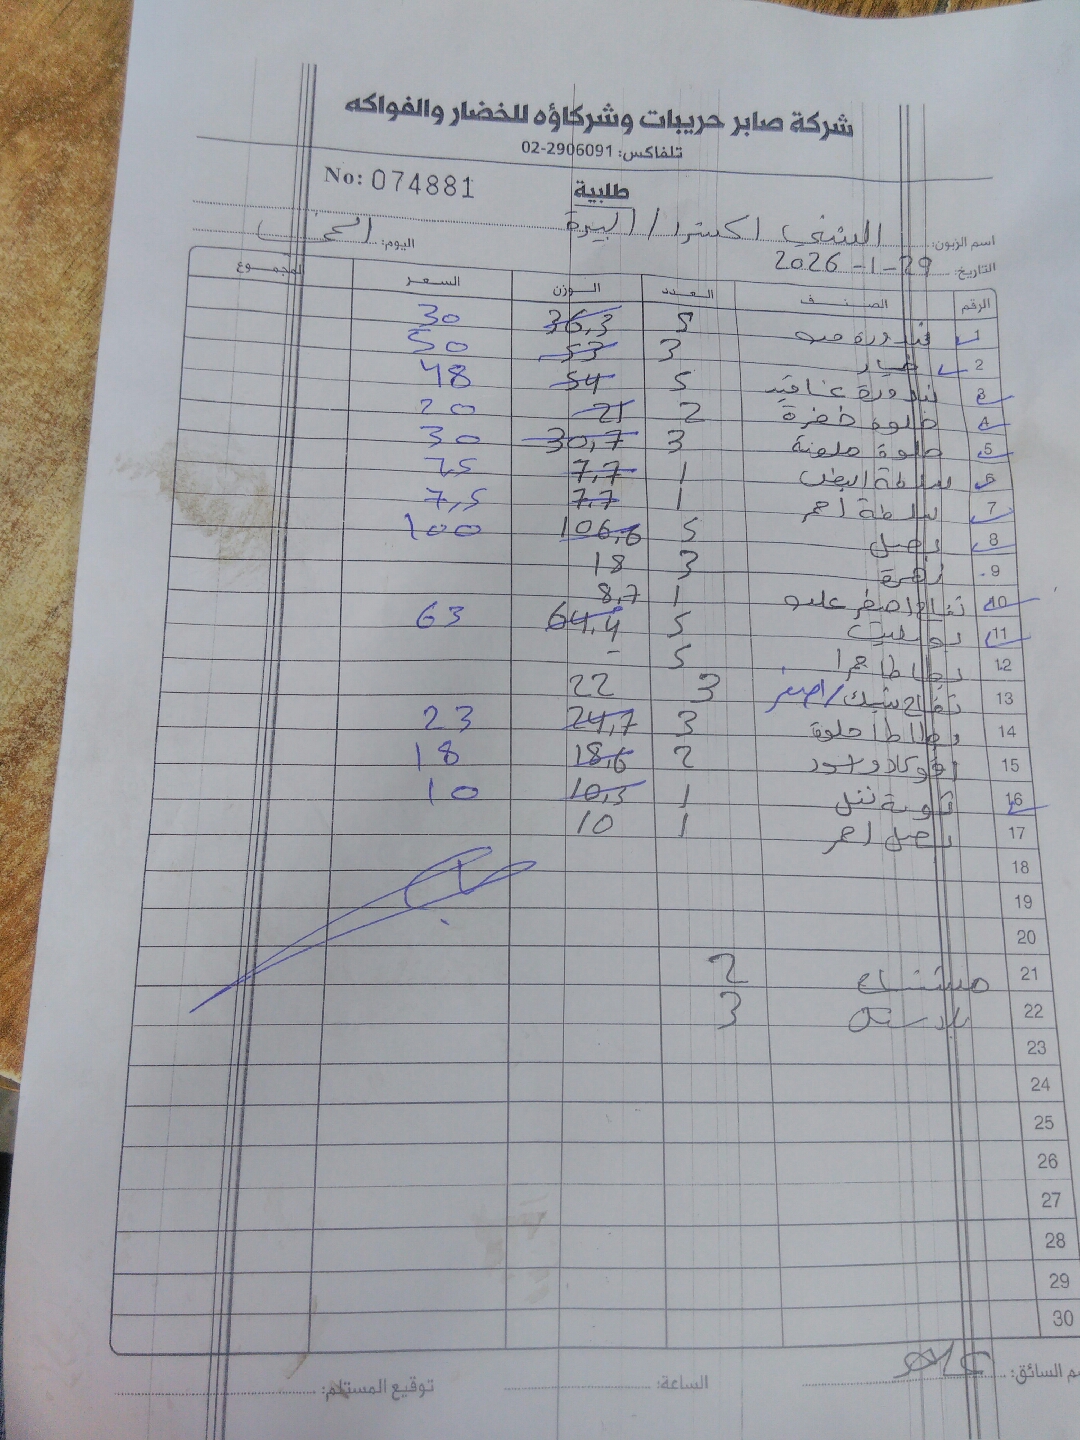 شركة صابر حريبات وشركاؤه للخضار والفواكه
تلفاكس: 02-2906091
No: 074881
طلبية
اسم الزبون: الشني اكسترا / البيرة اليوم:
التاريخ: 29-1-2026
الرقم الصنف العدد الوزن السعر المجموع
1 بندورة 5 36,3 30
2 خيار 3 53 50
3 بندورة عناقيد 5 54 48
4 حلوة خضرة 2 21 20
5 حلوة ملونة 3 30,7 30
6 سلطة ابيض 1 7,7 7,5
7 سلطة احمر 1 7,7 7,5
8 بصل 5 106,6 100
9 زهرة 3 18
10 تفاح اصفر 1 8,7
11 5 64,4 63
12 بطاطا حمرا 5 -
13 تفاح / اصفر 3 22
14 بطاطا حلوة 3 24,7 23
15 افوكادو 2 18,6 18
16 1 10,3 10
17 بصل احمر 1 10
18
19
20
21 2
22 3
23
24
25
26
27
28
29
30
السائق: الساعة: توقيع المستلم: